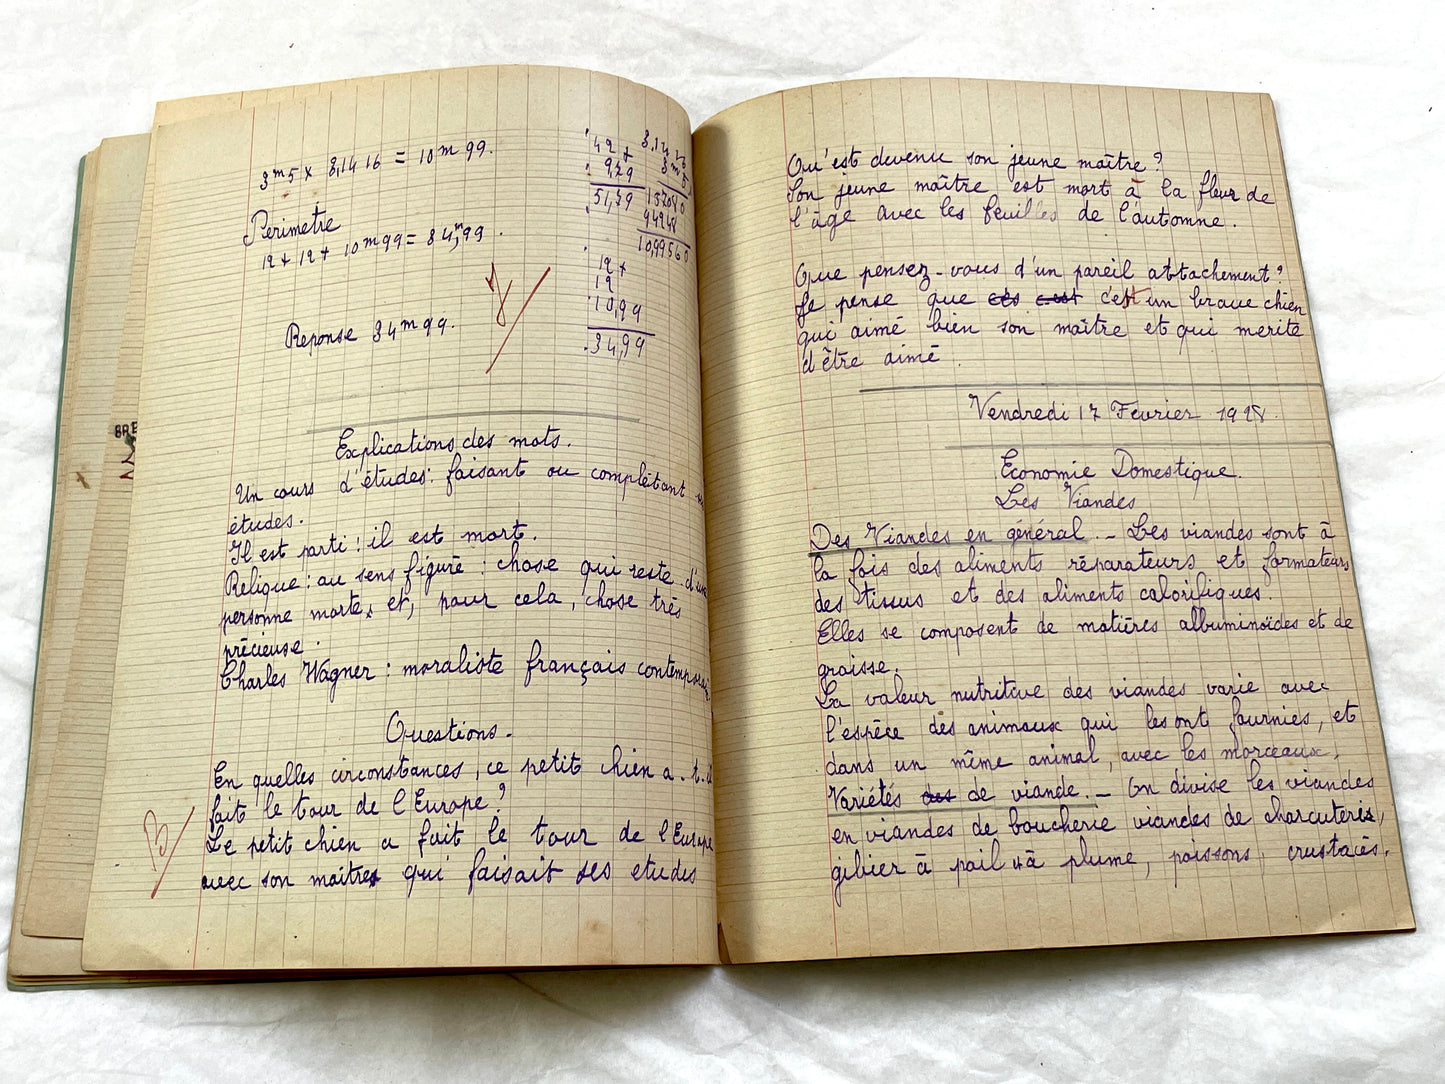 3m5 x 3,1416 = 10m99.
Périmetre
12 + 12 + 10m99 = 34,m99.
Reponse 34m99.
42 +
9,79
51,79
3,1416
3m5
157080
94248
10,99560
12 +
12
10,99
34,99
Explications des mots.
Un cours d'études : faisant ou complétant
études.
Il est parti : il est mort.
Relique : au sens figuré : chose qui reste d'une
personne morte, et, pour cela, chose très
précieuse.
Charles Wagner : moraliste français contemporain
Questions.
En quelles circonstances, ce petit chien a-t-il
fait le tour de l'Europe ?
Le petit chien a fait le tour de l'Europe
avec son maitre qui faisait ses etudes
B
BRE
Qu'est devenu son jeune maître ?
Son jeune maître est mort à la fleur de
l'âge avec les feuilles de l'automne.
Que pensez-vous d'un pareil attachement ?
Je pense que ces cest c'est un brave chien
qui aimé bien son maître et qui merite
d'être aimé
Vendredi 17 Février 1928.
Economie Domestique.
Les Viandes
Des Viandes en général. - Les viandes sont à
la fois des aliments réparateurs et formateurs
des tissus et des aliments calorifiques.
Elles se composent de matières albuminoïdes et de
graisse.
La valeur nutritive des viandes varie avec
l'espèce des animaux qui les ont fournies, et
dans un même animal, avec les morceaux.
Variétés des de viande. - On divise les viandes
en viandes de boucherie viandes de charcuterie,
gibier à poil à plume, poissons, crustacés.